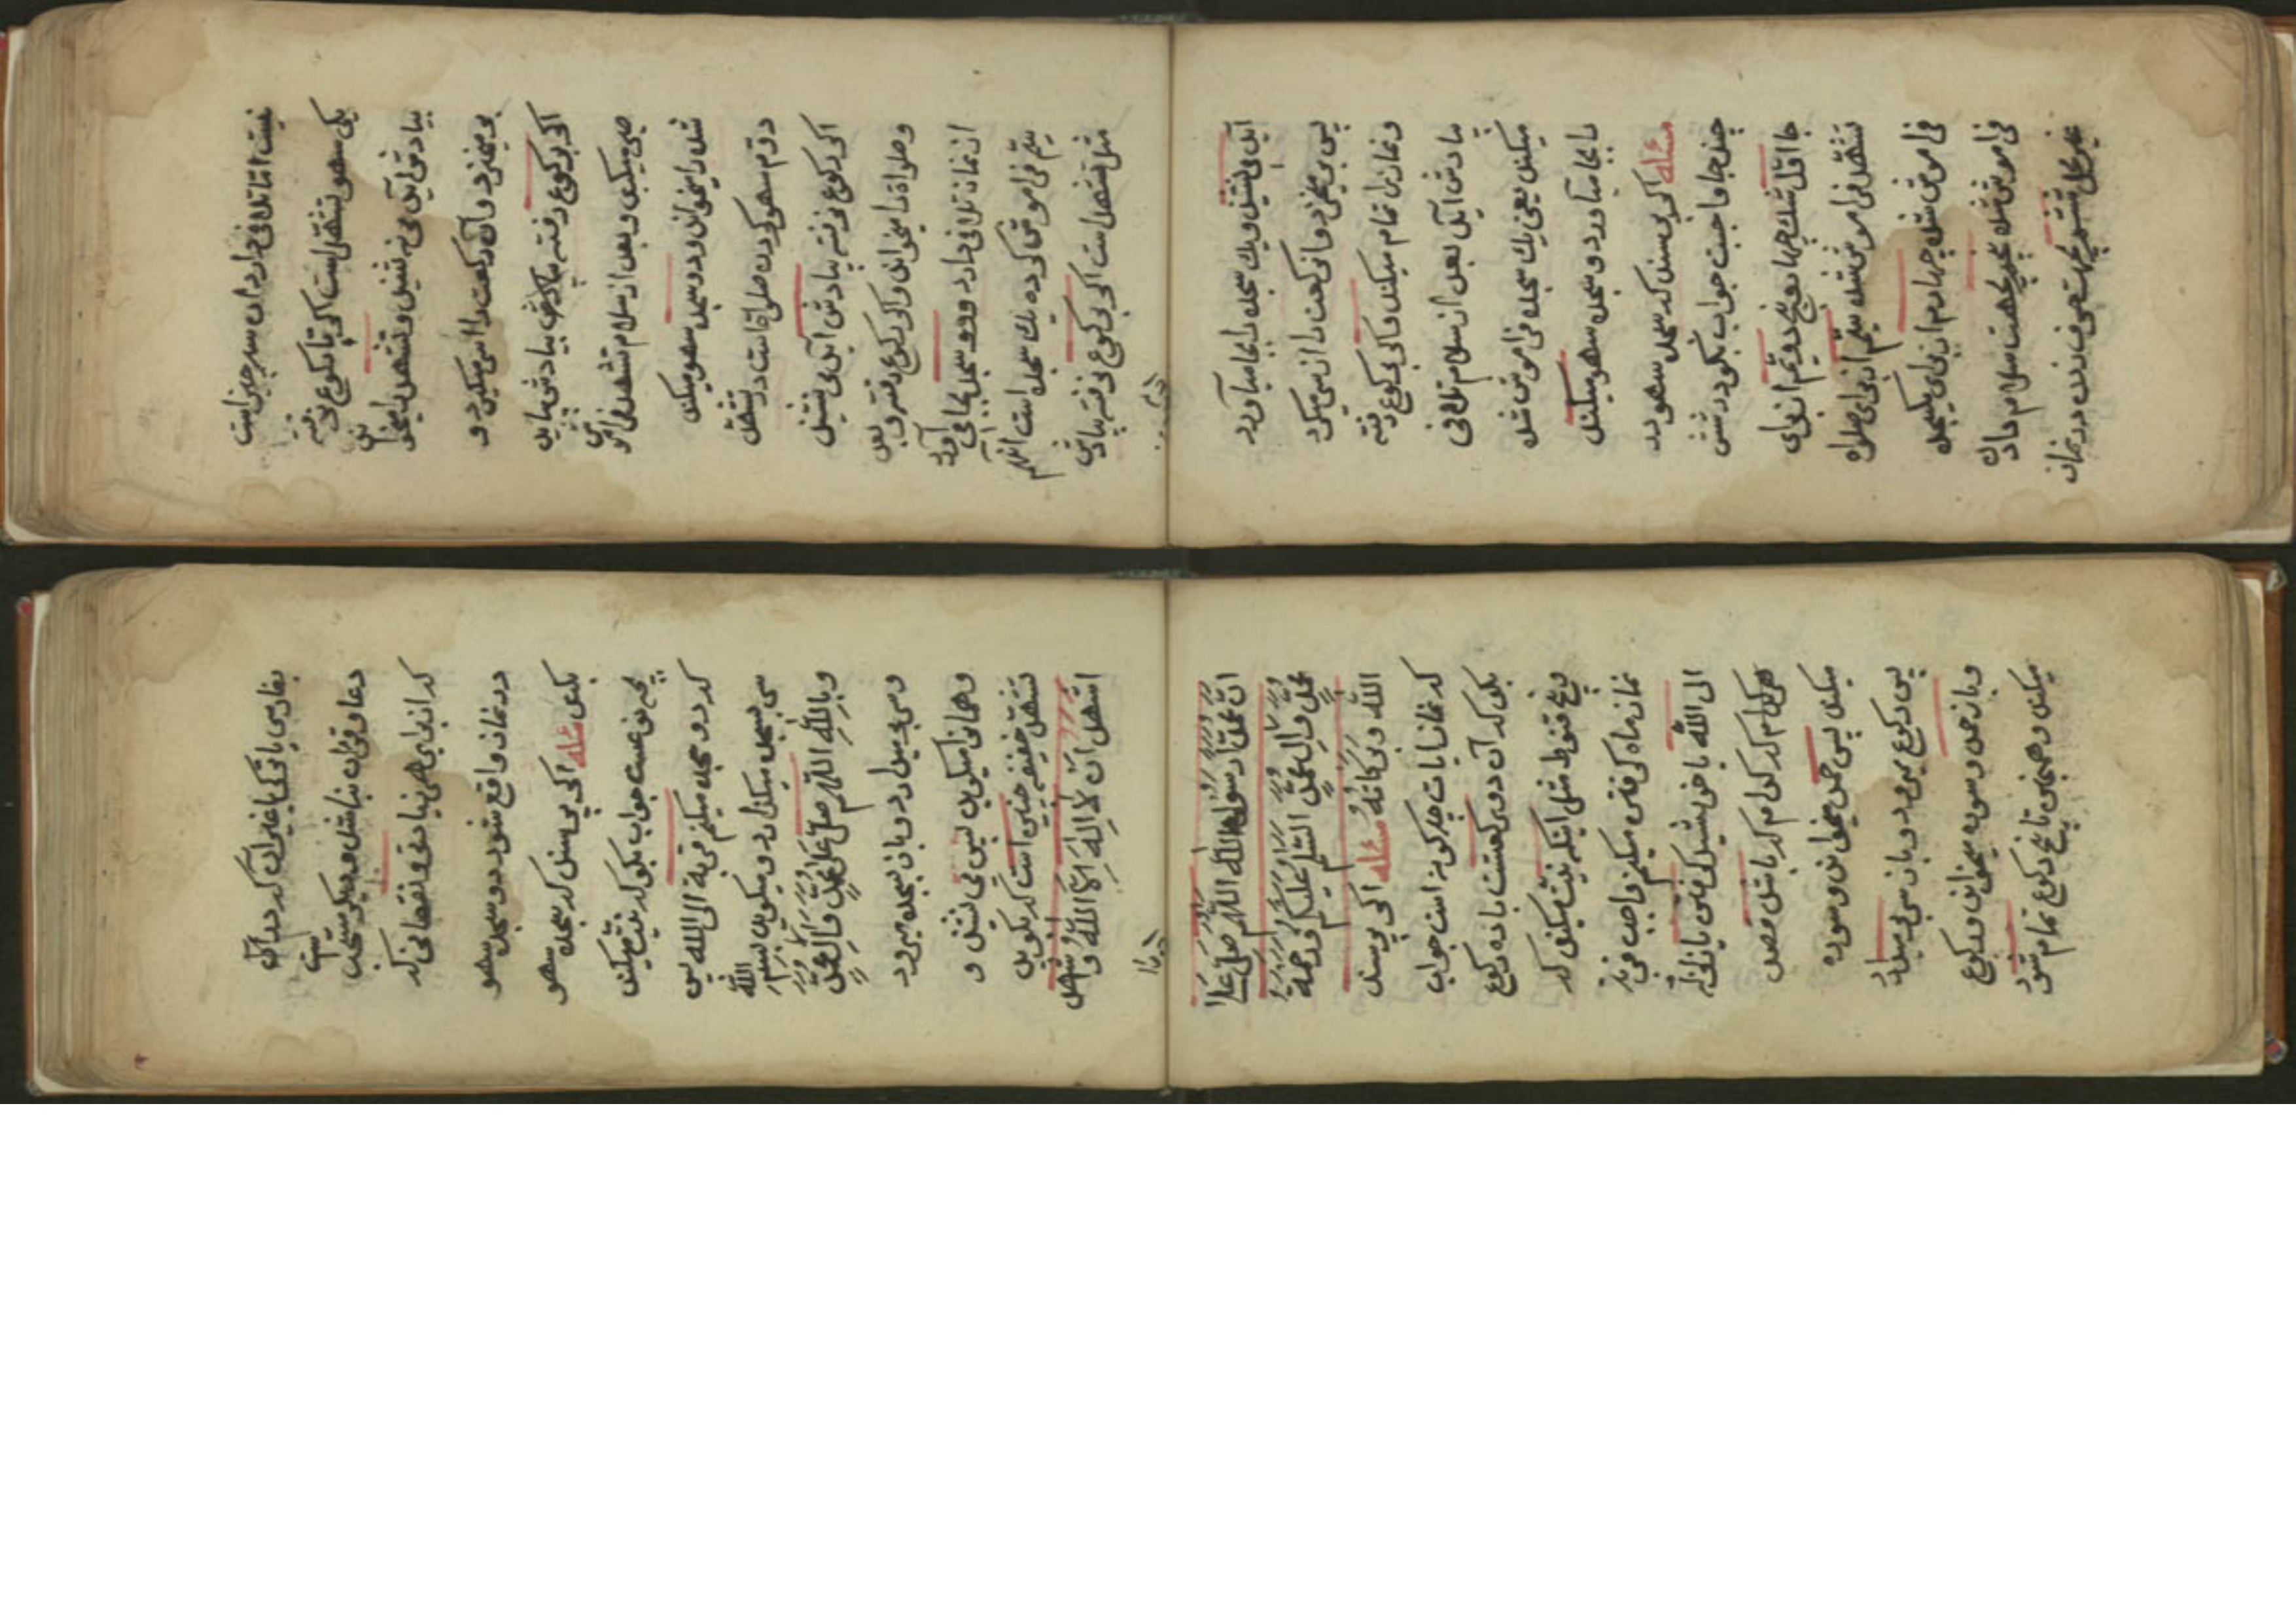 نیست اما تلافی دارد ان سه چیز است
یکی سهو تشهد است اگر تا برکوع نرفته
بیادش آید می نشیند و تشهد را میخواند
بر میخیزد و آن رکعت را از سر میگیرد و
اگر برکوع رفته بیادش بیاید
صبر میکند و بعد از سلام تشهد فراموش
شده را میخواند و دو سجده سهو میکند
دوم سهو کردن صلوات است در تشهد
اگر برکوع نرفته بیادش آید می نشیند
وصلواة را میخواند و اگر برکوع رفته بعد
از نماز تلافی دارد و دو سجده بجا می آورد
سیم فراموش کرده یک سجده است انهم
مثل تشهد است اگر برکوع نرفته بیادش
آید می نشیند و یک سجده را بجا میاورد
پس بر میخیزد و ان رکعت را از سر میگیرد
و نماز را تمام میکند و اگر برکوع رفته
بیادش آید بعد از سلام تلافی
میکند یعنی یک سجده فراموش شده
را بجا میاورد و دو سجده سهو میکند
مسئله اگر پرسند که سجده سهو در
چند جا واجبست جواب بگو در شش
جا اول شک چهار و پنج دویم از برای
تشهد فراموش شده سیم از برای صلواة
فراموش شده چهارم از برای یکسجده
فراموش شده پنجم بجهت سلام دادن
غیر محل ششم بجهت حرف زدن در نماز
بفارسی یا ترکی یا غیر آن که در آن
دعا و قران نباشد و میگو مستحب است
که از برای هر زیادتی و نقصانی که
در نماز واقع شود دو سجده سهو
بکند مسئله اگر پرسند که سجده سهو
بچه نوعست جواب بگو که نیت میکند
که دو سجده میکنم قربة الی الله پس
سر بسجده میگذارد و میگوید بسم الله
وبالله اللهم صل علی محمد وال محمد
و سر بر میدارد و باز بسجده میرود
و همان میگوید پس می نشیند و
تشهد خفیفه چنین است که بگوید
اشهد ان لا اله الا الله و اشهد
ان محمدا رسول الله اللهم صل علی
محمد وال محمد السلام علیکم ورحمة
الله وبرکاته مسئله اگر پرسند
که نماز ایات چه گونه است جواب
بگو که آن دو رکعتست با ده رکوع
و پنج قنوط مثل اینکه نیت میکند که
نماز ماه گرفتن میکنم واجب قربة
الی الله یا خورشید گرفتن یا زلزله
هر کدام که کدام که باشد قصد
میکند پس حمد میخواند و سوره
پس رکوع میرود و باز سر بر میدارد
و باز حمد و سوره میخواند و رکوع
میکند و همچنین تا پنج رکوع تمام شود